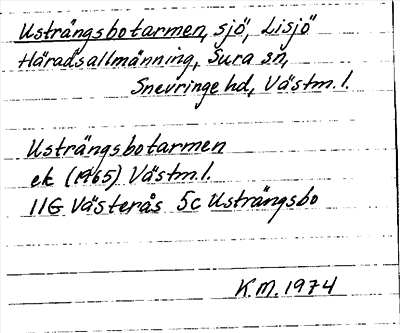 Usträngsbotarmen, sjö, Lisjö
Häradsallmänning, Sura sn,
Snevringe hd, Västm.l.
Usträngsbotarmen
ek (1965) Västm.l.
11G Västerås 5c Usträngsbo
K.M. 1974